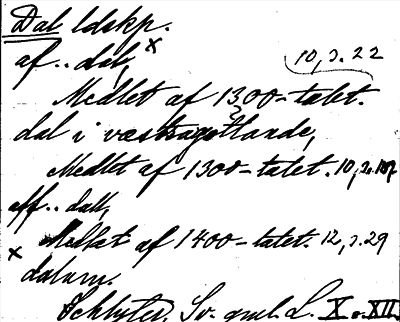 Dal ldskp.
af .. dal, x 10, s. 22
Medlet af 1300-talet.
dal i væstragøtlande,
Medlet af 1300-talet. 10, s. 107
aff .. dall,
x Mellet af 1400-talet. 12, s. 29
dalum.
Schlyter, Sv. gml. L. X o. XII.